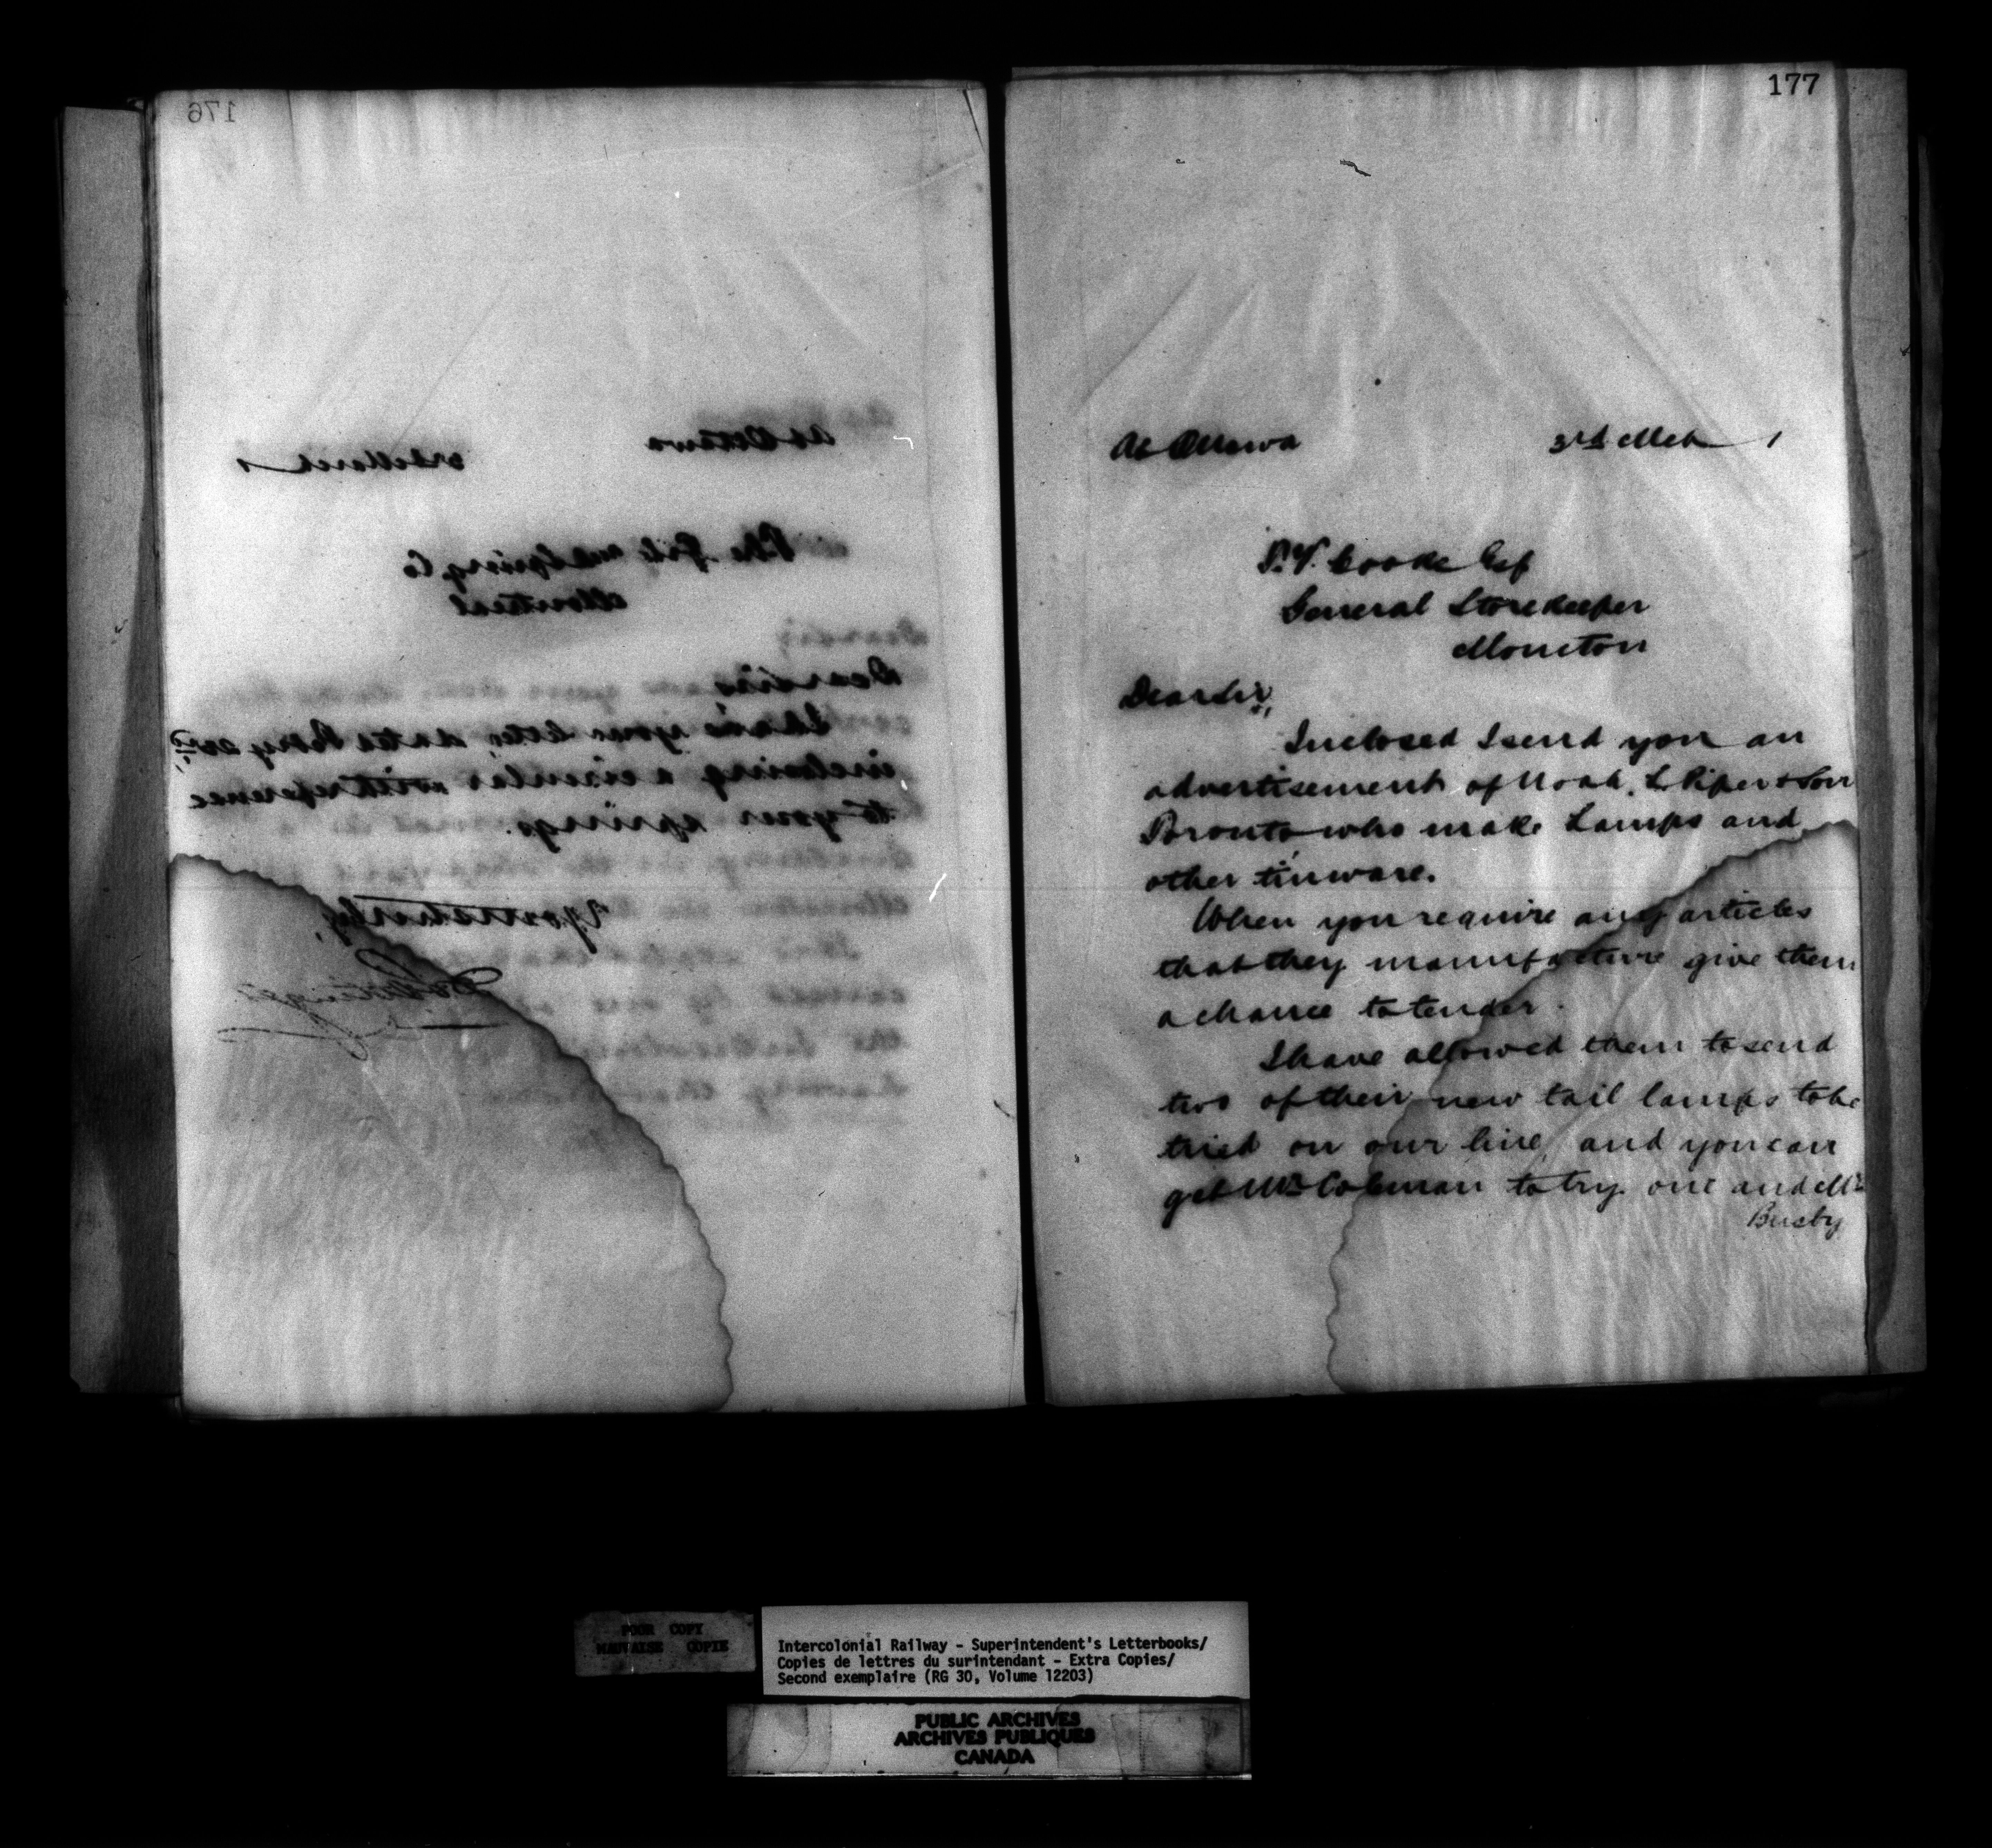 176
At Ottawa 3rd March 1
Montreal
Dear Sir,
I have your letter, dated Febry 23rd,
inclosing a circular with reference
to your springs.
Yours truly,
177
At Ottawa 3rd Mch 1
Cooke Esq
General Storekeeper
Moncton
Dear Sir,
Inclosed I send you an
advertisement of Noah. L. Piper & Son
Toronto who make Lamps and
other tinware.
When you require any articles
that they manufacture give them
a chance to tender.
I have allowed them to send
two of their new tail lamps to be
tried on our line, and you can
get Mr. Coleman to try one and Mr
Busby
POOR COPY
MAUVAISE COPIE
Intercolonial Railway - Superintendent's Letterbooks/
Copies de lettres du surintendant - Extra Copies/
Second exemplaire (RG 30, Volume 12203)
PUBLIC ARCHIVES
ARCHIVES PUBLIQUES
CANADA